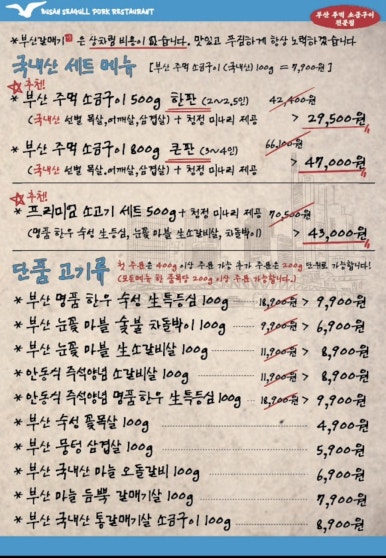 BUSAN SEAGULL PORK RESTAURANT
부산 주먹 소금구이
전문점
*부산갈매기 은 상차림 비용이 없습니다. 맛있고 푸짐하게 항상 노력하겠습니다
국내산 세트 메뉴 [부산 주먹 소금구이 (국내산) 100g = 7,900원]
추천!
* 부산 주먹 소금구이 500g 한판 (2~2.5인) 42,400원
(국내산 선별 목살,어깨살,삼겹살) + 청정 미나리 제공 > 29,500원
* 부산 주먹 소금구이 800g 큰판 (3~4인) 66,100원
(국내산 선별 목살,어깨살,삼겹살) + 청정 미나리 제공 > 47,000원
추천!
* 프리미엄 소고기 세트 500g + 청정 미나리 제공 70,500원
(명품 한우 숙성 生등심, 눈꽃 마블 生소갈비살, 차돌박이) > 45,000원
단품 고기류 첫 주문은 400g 이상 주문 가능 추가 주문은 200g 단위로 가능합니다!
(모든메뉴 한 품목당 200g 이상 주문 가능합니다.)
* 부산 명품 한우 숙성 生특등심 100g 18,900원 > 9,900원
* 부산 눈꽃 마블 숯불 차돌박이 100g 9,900원 > 6,900원
* 부산 눈꽃 마블 生소갈비살 100g 11,900원 > 8,900원
* 안동식 즉석양념 소갈비살 100g 11,900원 > 8,900원
* 안동식 즉석양념 명품 한우 生특등심 100g 18,900원 > 9,900원
* 부산 숙성 꽃목살 100g 4,900원
* 부산 뭉텅 삼겹살 100g 5,900원
* 부산 국내산 마늘 오돌갈비 100g 6,900원
* 부산 마늘 듬뿍 갈매기살 100g 7,900원
* 부산 국내산 통갈매기살 소금구이 100g 8,900원